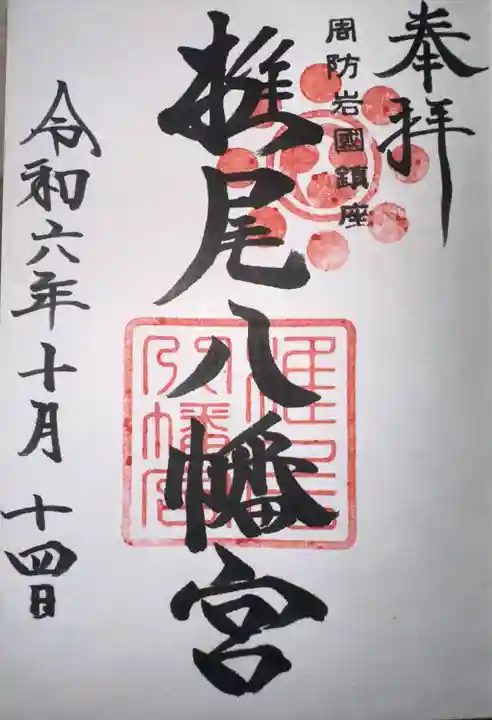 奉拝
周防岩國鎮座
椎尾八幡宮
椎尾八幡宮
令和六年十月十四日